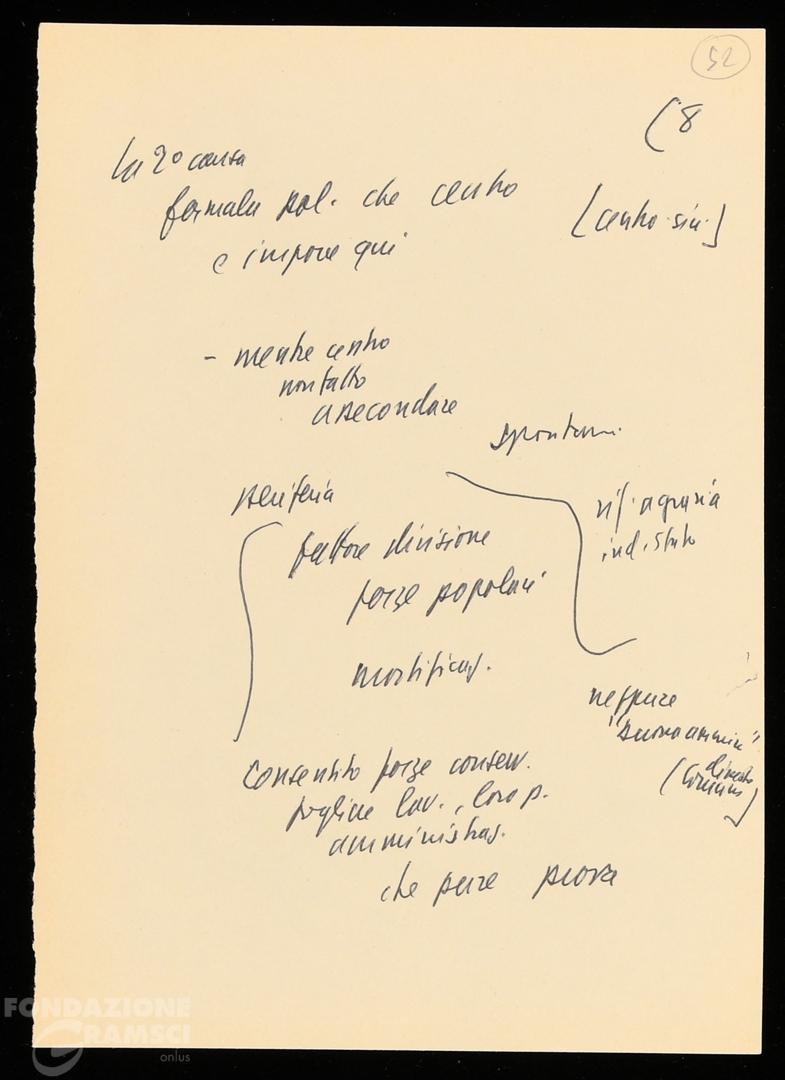 52
(8
la 2° causa
formula pol. che centro
[centro-sin.]
e impone qui
- mentre centro
non fatto
assecondare
spontan.
periferia
rif. agraria
ind. Stato
fattore divisione
forze popolari
mortificaz.
neppure
"buona ammin"
(Comuni)
consentito forze conserv.
togliere lav., loro p.
amministraz.
che pure prova
FONDAZIONE
GRAMSCI
onlus